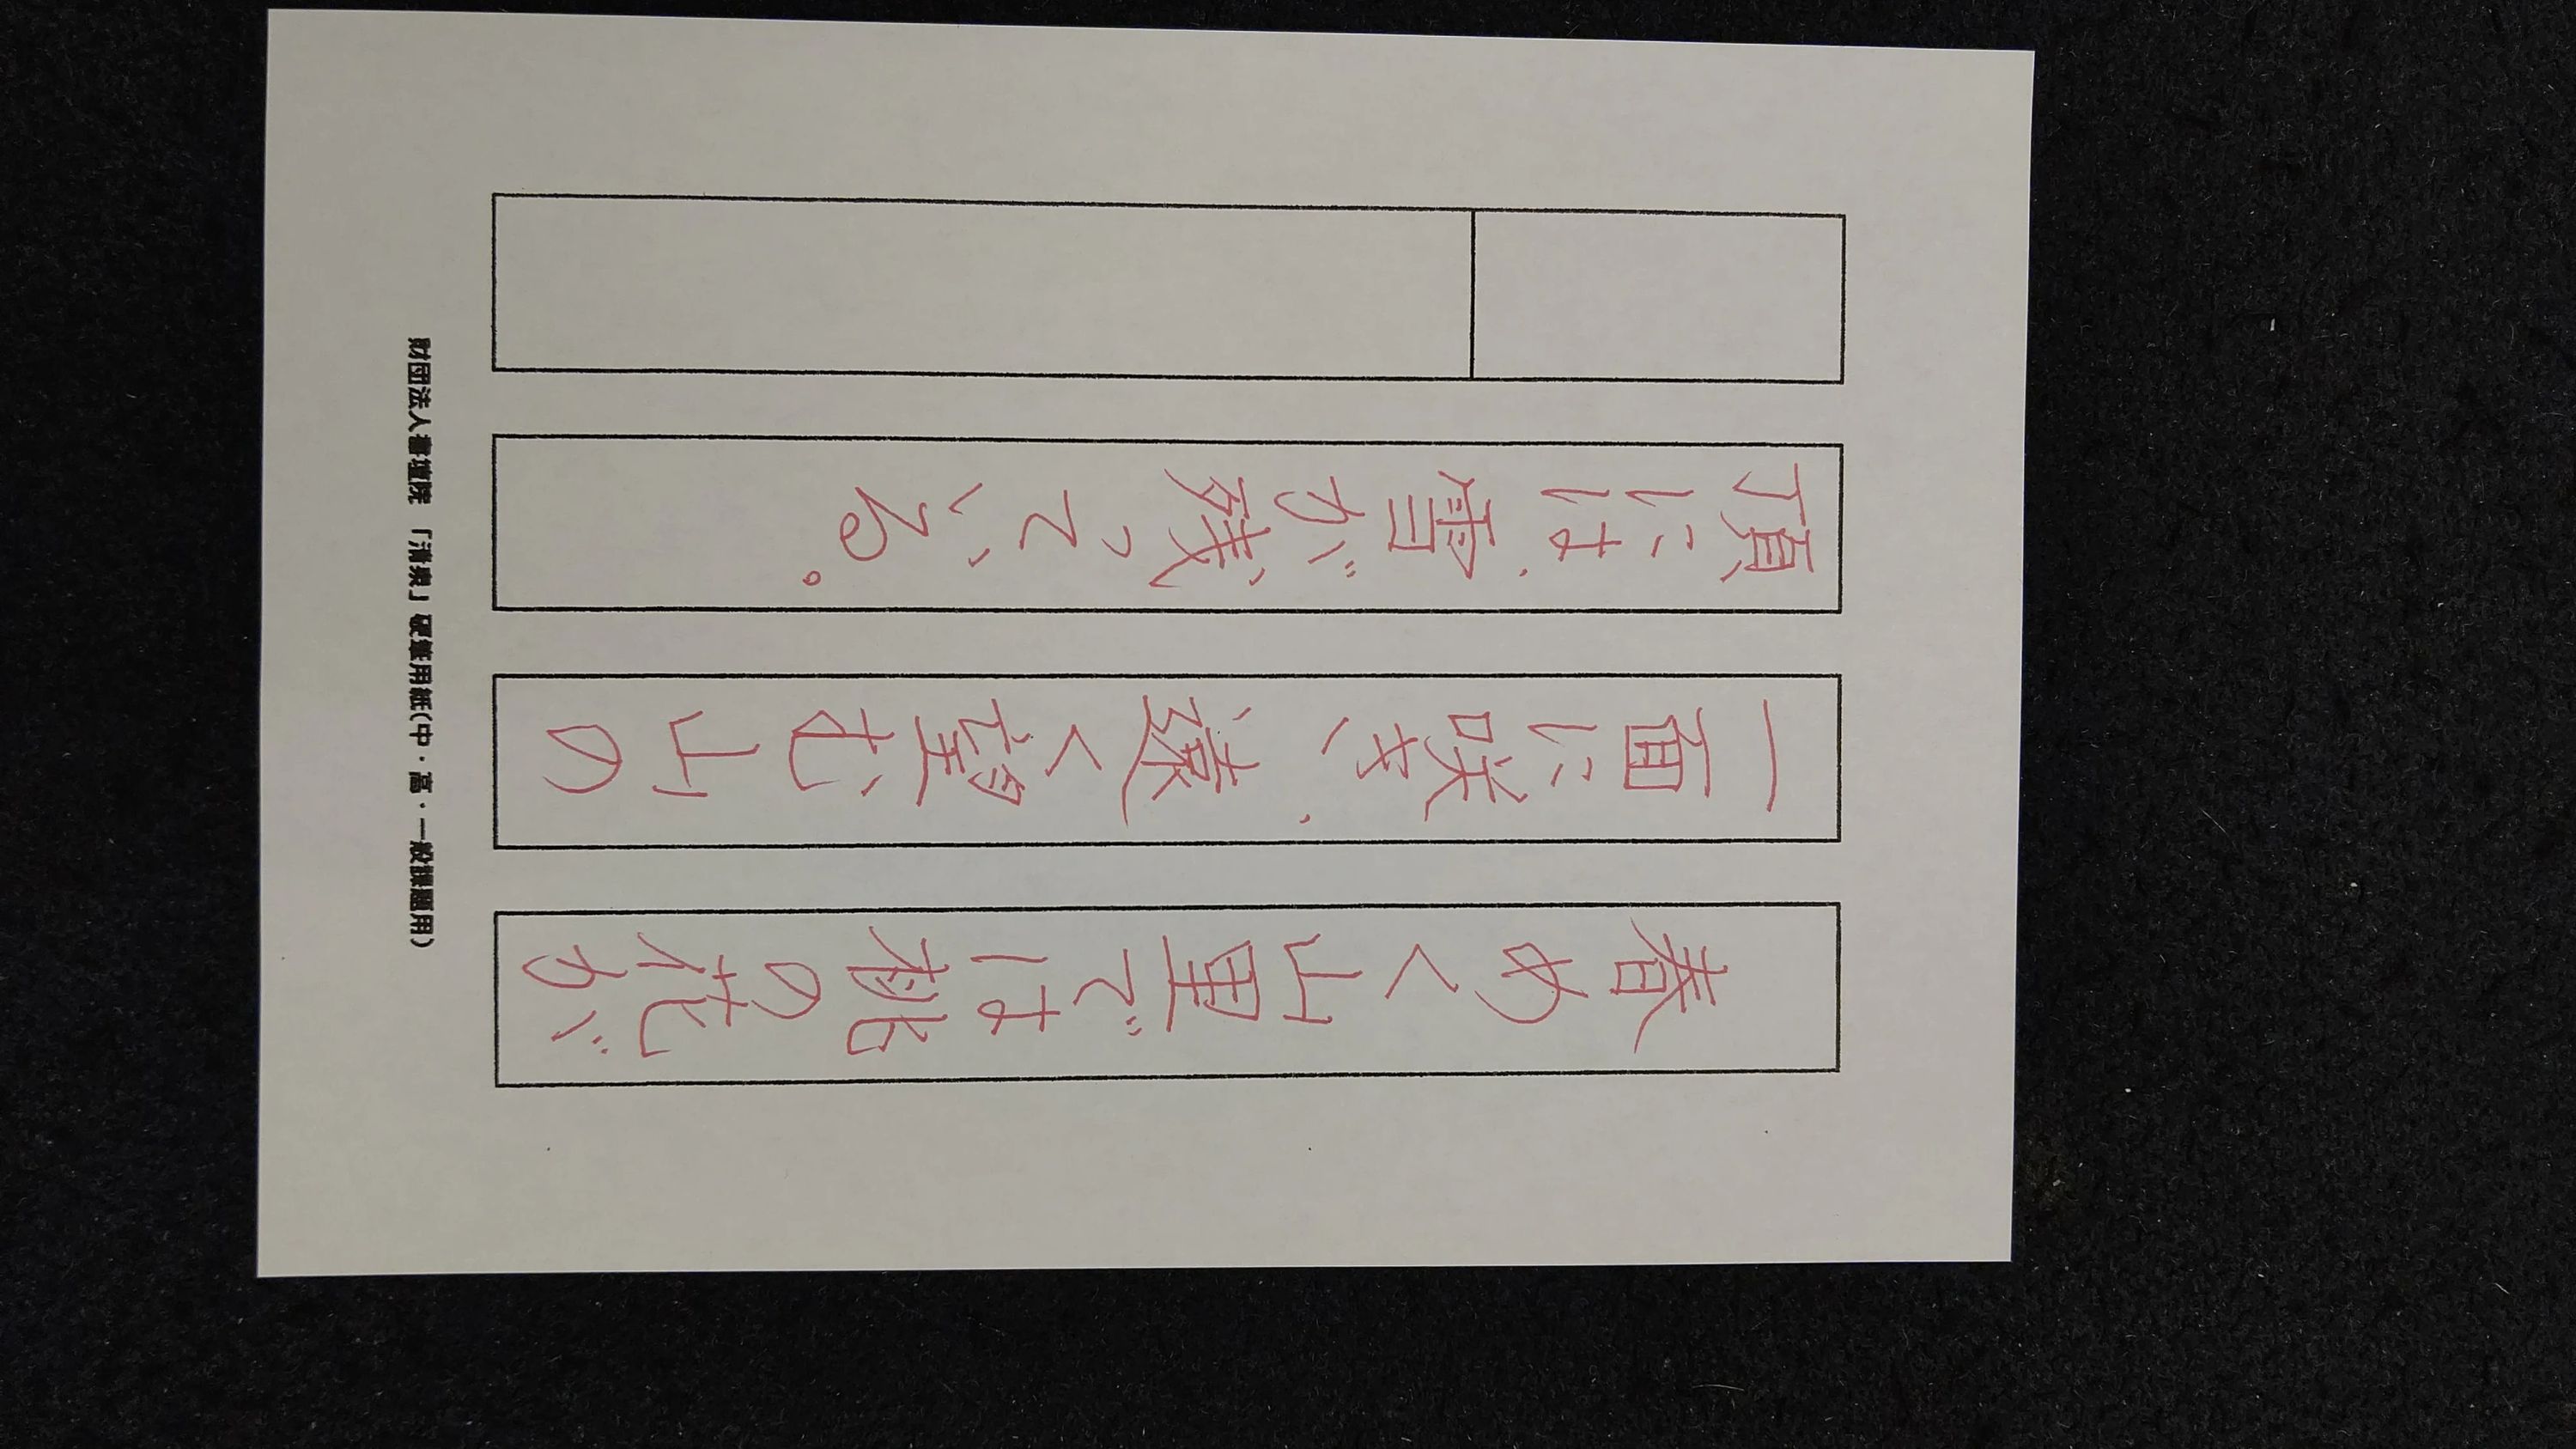 春めく山里では桃の花が
一面に咲き、遠く望む山の
頂には、雪が残っている。
財団法人書壇院 「清泉」硬筆用紙(中・高・一般課題用)